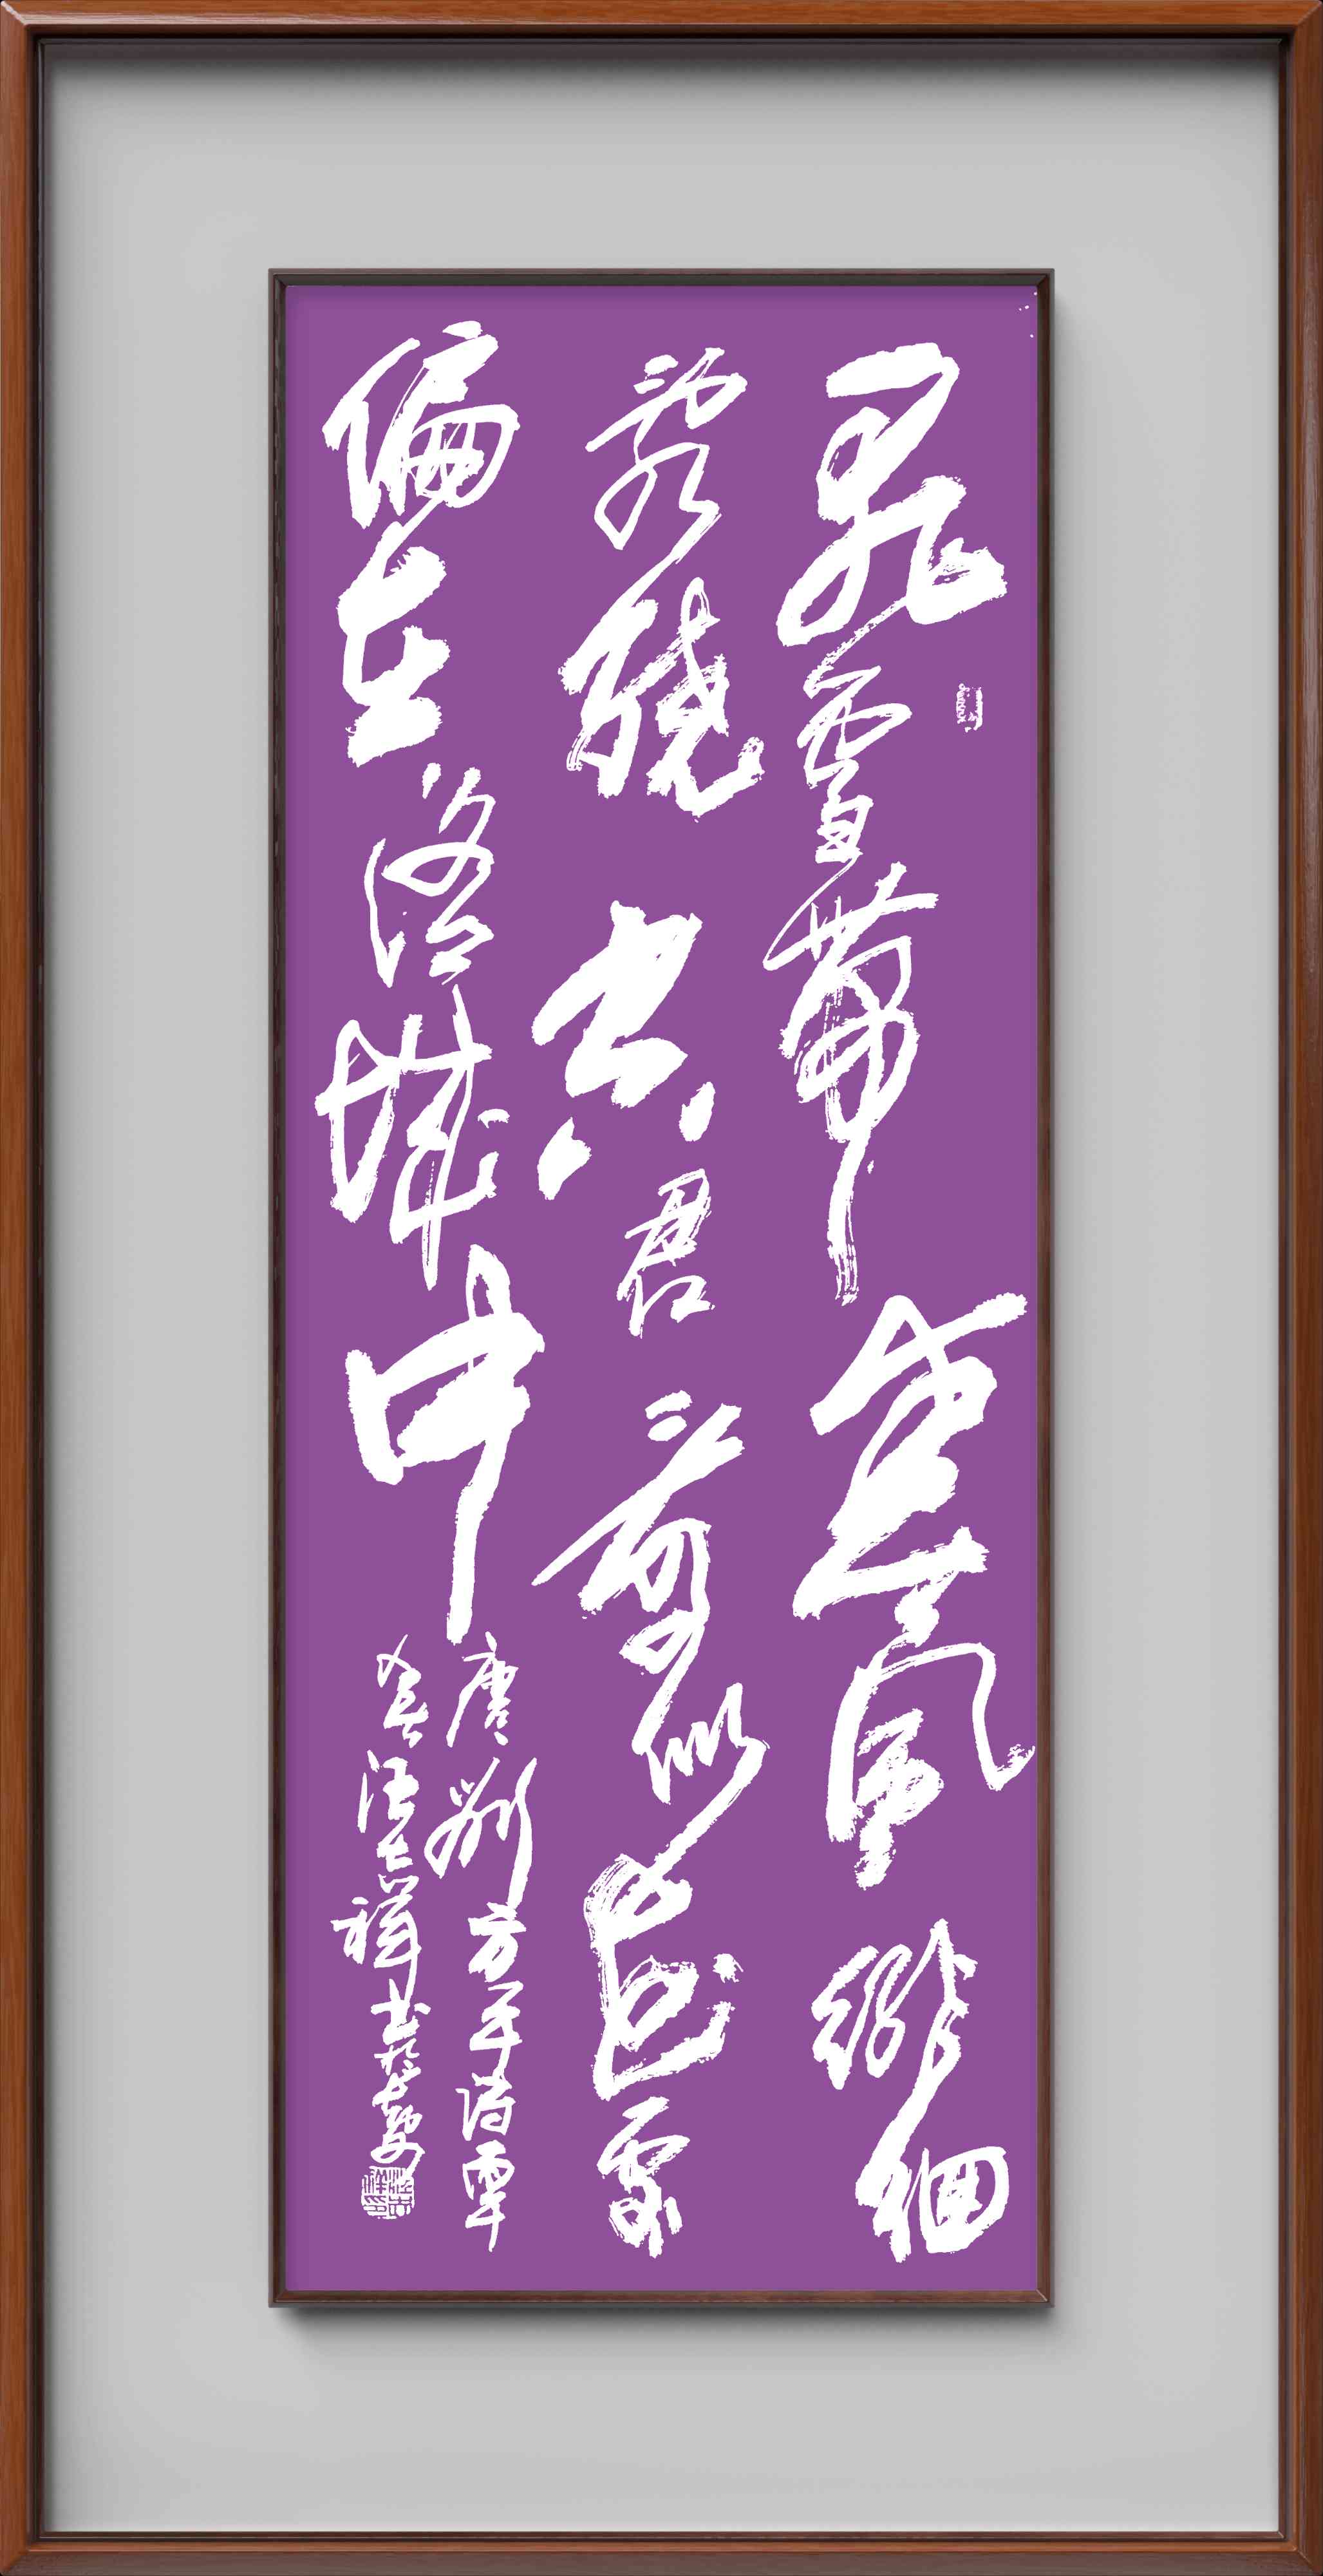 飛雪帶春風徘徊
亂繞空君看似花處
偏在洛城中
唐劉方平詩
祥书於